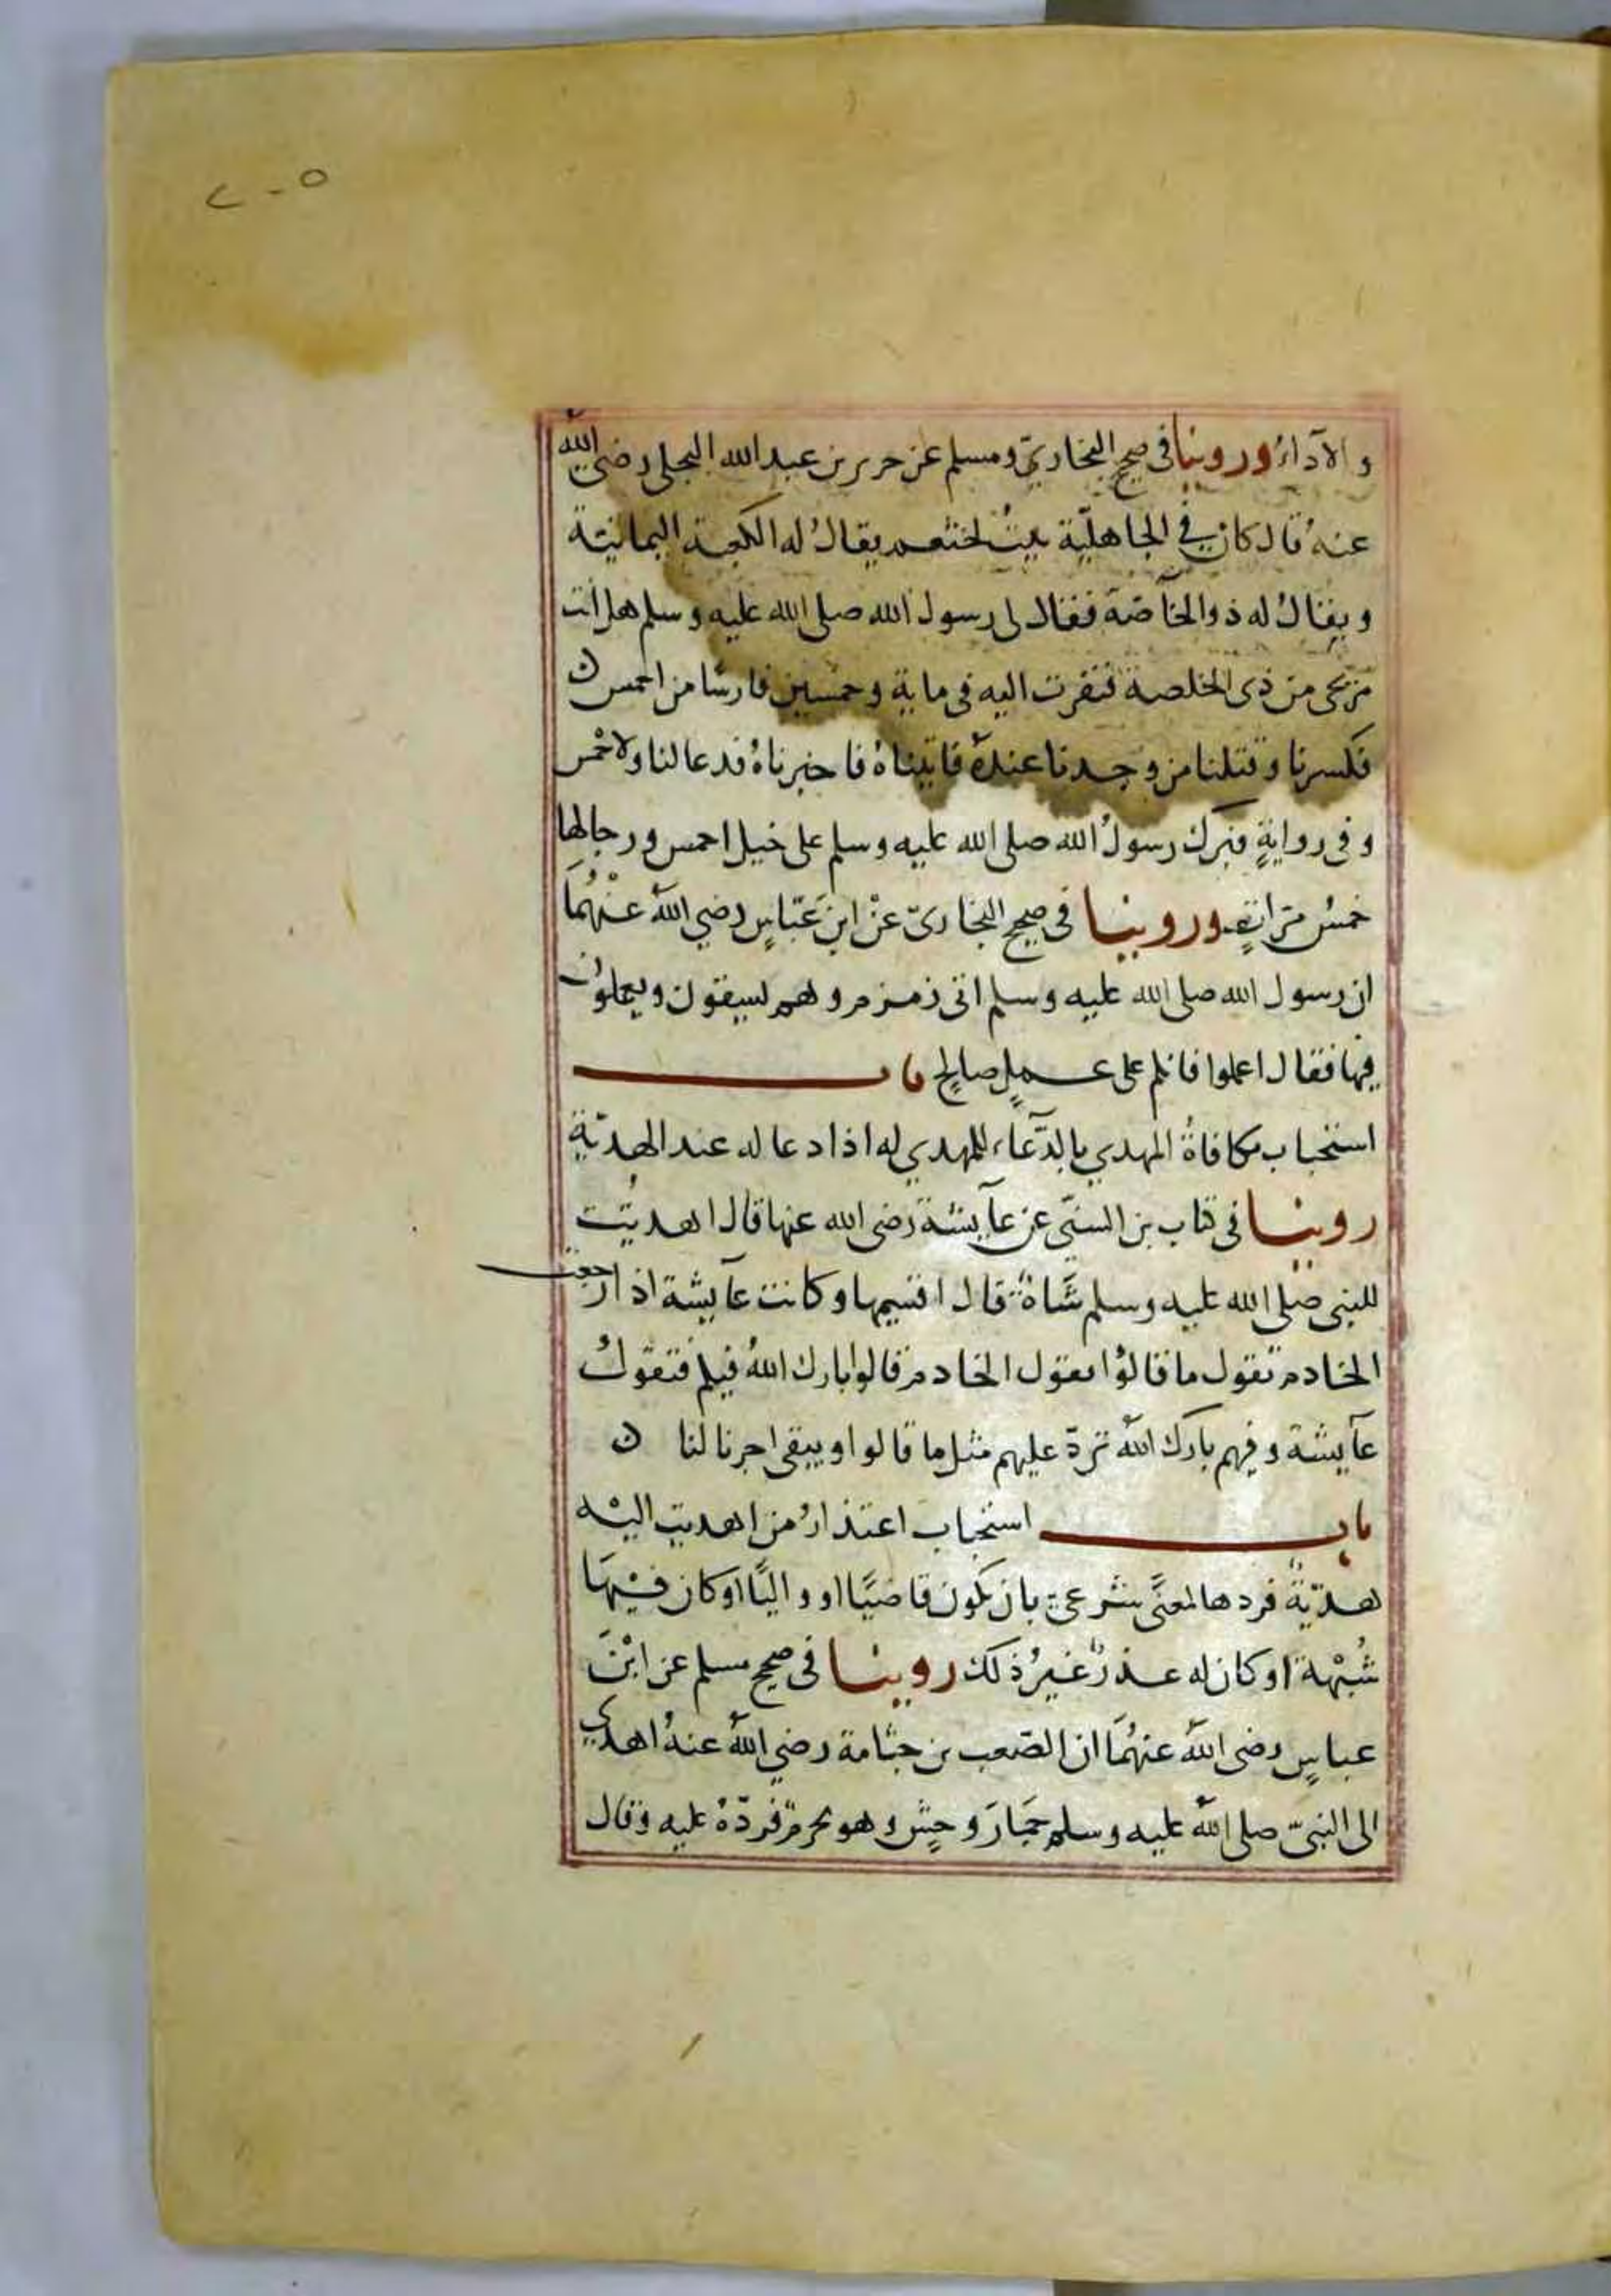 ٢٠٥
والآداءُ وروينا في صحيح البخاريّ ومسلم عن جرير بن عبد الله البجلي رضي الله
عنهُ قال كان في الجاهليّة بيتٌ لخثعم يقالُ له الكعبة اليمانيّة
ويقالُ له ذو الخاصّة فقال لي رسول الله صلى الله عليه وسلم هل انت
مريحى من ذى الخلصة فنفرت اليه في ماية وخمسين فارسًا من احمس ن
فكسرنا وقتلنا من وجدنا عندهُ فاتيناهُ فاخبرناهُ فدعا لنا ولاحمس
وفي روايةٍ فبرك رسولُ الله صلى الله عليه وسلم على خيل احمس ورجالها
خمسُ مرّاتٍ وروينا في صحيح البخاريّ عنْ ابنِ عَبّاسٍ رضي اللهُ عنْهُمَا
ان رسول الله صلى الله عليه وسلم اتى زمزم وهم يسقون ويعملون
فيها فقال اعملوا فانكم على عملٍ صالحٍ باب
استحباب مكافاةُ المهدي بالدّعاء للمهدي له اذا دعا له عند الهديّة
روينا في كتاب بن السنيّ عن عآيشة رضي الله عنها قال اهديت
للنبي صلى الله عليه وسلم شَاةٌ قال اقسميها وكانت عآيشة اذا رجعت
الخادم تقول ما قالوُا تقول الخادم قالوا بارك اللهُ فيكم فتقولُ
عآيشة وفيهم بارك اللهُ نردّ عليهم مثل ما قالوا ويبقى اجرنا لنا ن
باب استحباب اعتذارُ من اهديت اليْه
هديّةٌ فردها لمعنًى شرعىّ بان يكون قاضيًا او واليًا او كان فيْهَا
شُبْهة او كان له عذرٌ غيرُ ذلك روينا في صحيح مسلم عن ابْن
عباسٍ رضي اللهُ عنهُمَا ان الصّعب بن جثامة رضي اللهُ عنهُ اهدي
الى النبيّ صلى اللهُ عليه وسلم حِمَارَ وحشٍ وهو محرمٌ فردّهُ عليه وقال